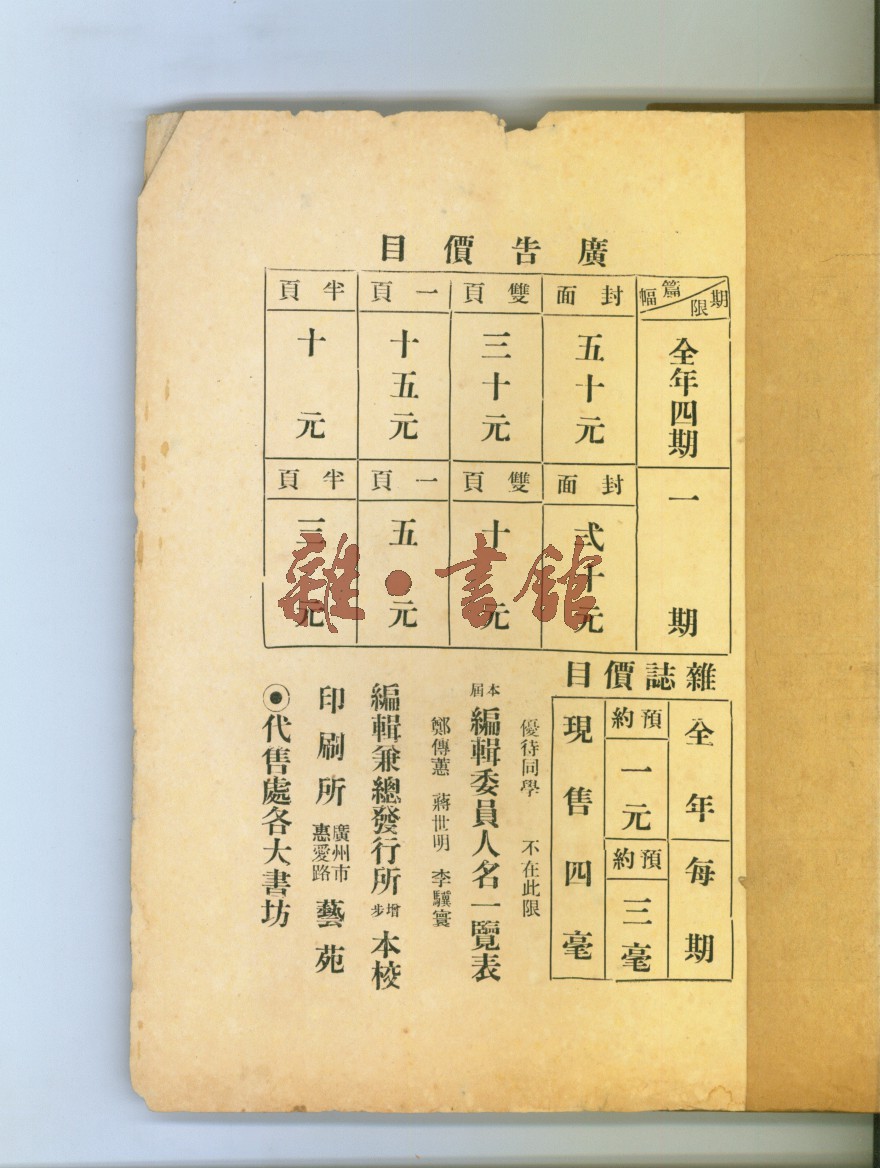 廣告價目
期限 篇幅
全年四期
封面 五十元
雙頁 三十元
一頁 十五元
半頁 十元
一期
封面 弍十元
雙頁 十元
一頁 五元
半頁 三元
雜・書館
雜誌價目
全年 每期
預約 一元
預約 三毫
現售四毫
優待同學 不在此限
本屆編輯委員人名一覽表
鄭傳蕙 蔣世明 李驥寰
編輯兼總發行所 增步 本校
印刷所 廣州市惠愛路 藝苑
⦿代售處各大書坊